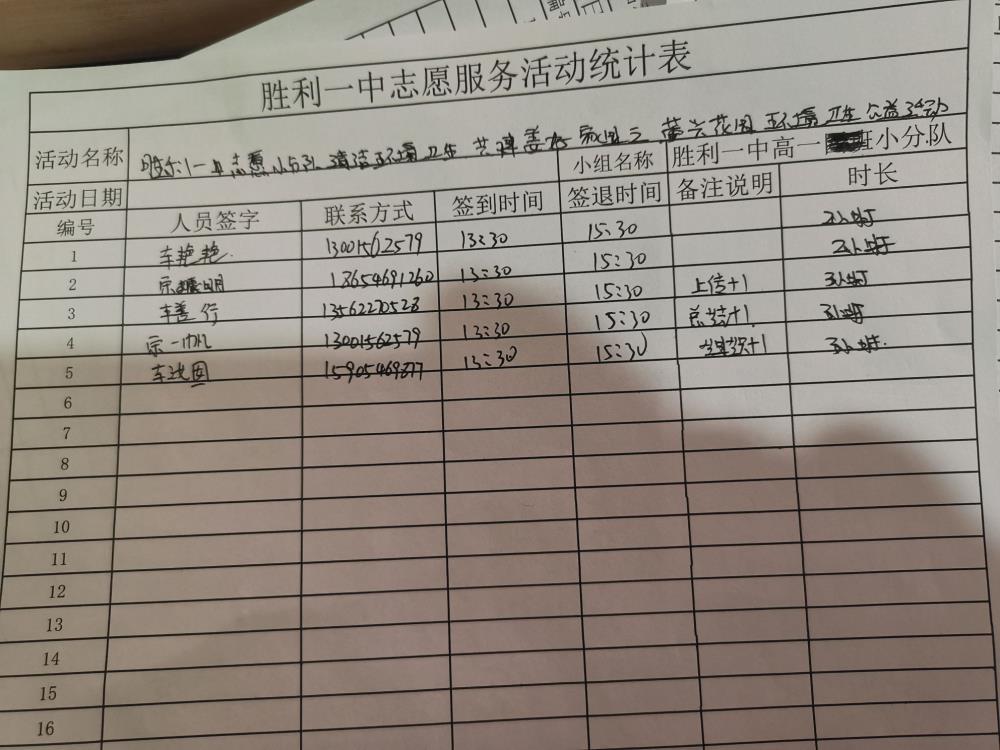 胜利一中志愿服务活动统计表
活动名称 胜利一中志愿小分队清洁环境卫生 共建美好家园之 花园环境卫生公益活动
活动日期 小组名称 胜利一中高一 班小分队
编号 人员签字 联系方式 签到时间 签退时间 备注说明 时长
1 车艳艳 13001562579 13:30 15:30 2小时
2 宗 明 18654691260 13:30 15:30 2小时
3 车善行 13562270528 13:30 15:30 上传+1 3小时
4 宗一帆 13001562579 13:30 15:30 总结+1 3小时
5 车 国 15905469877 13:30 15:30 +1 3小时
6
7
8
9
10
11
12
13
14
15
16